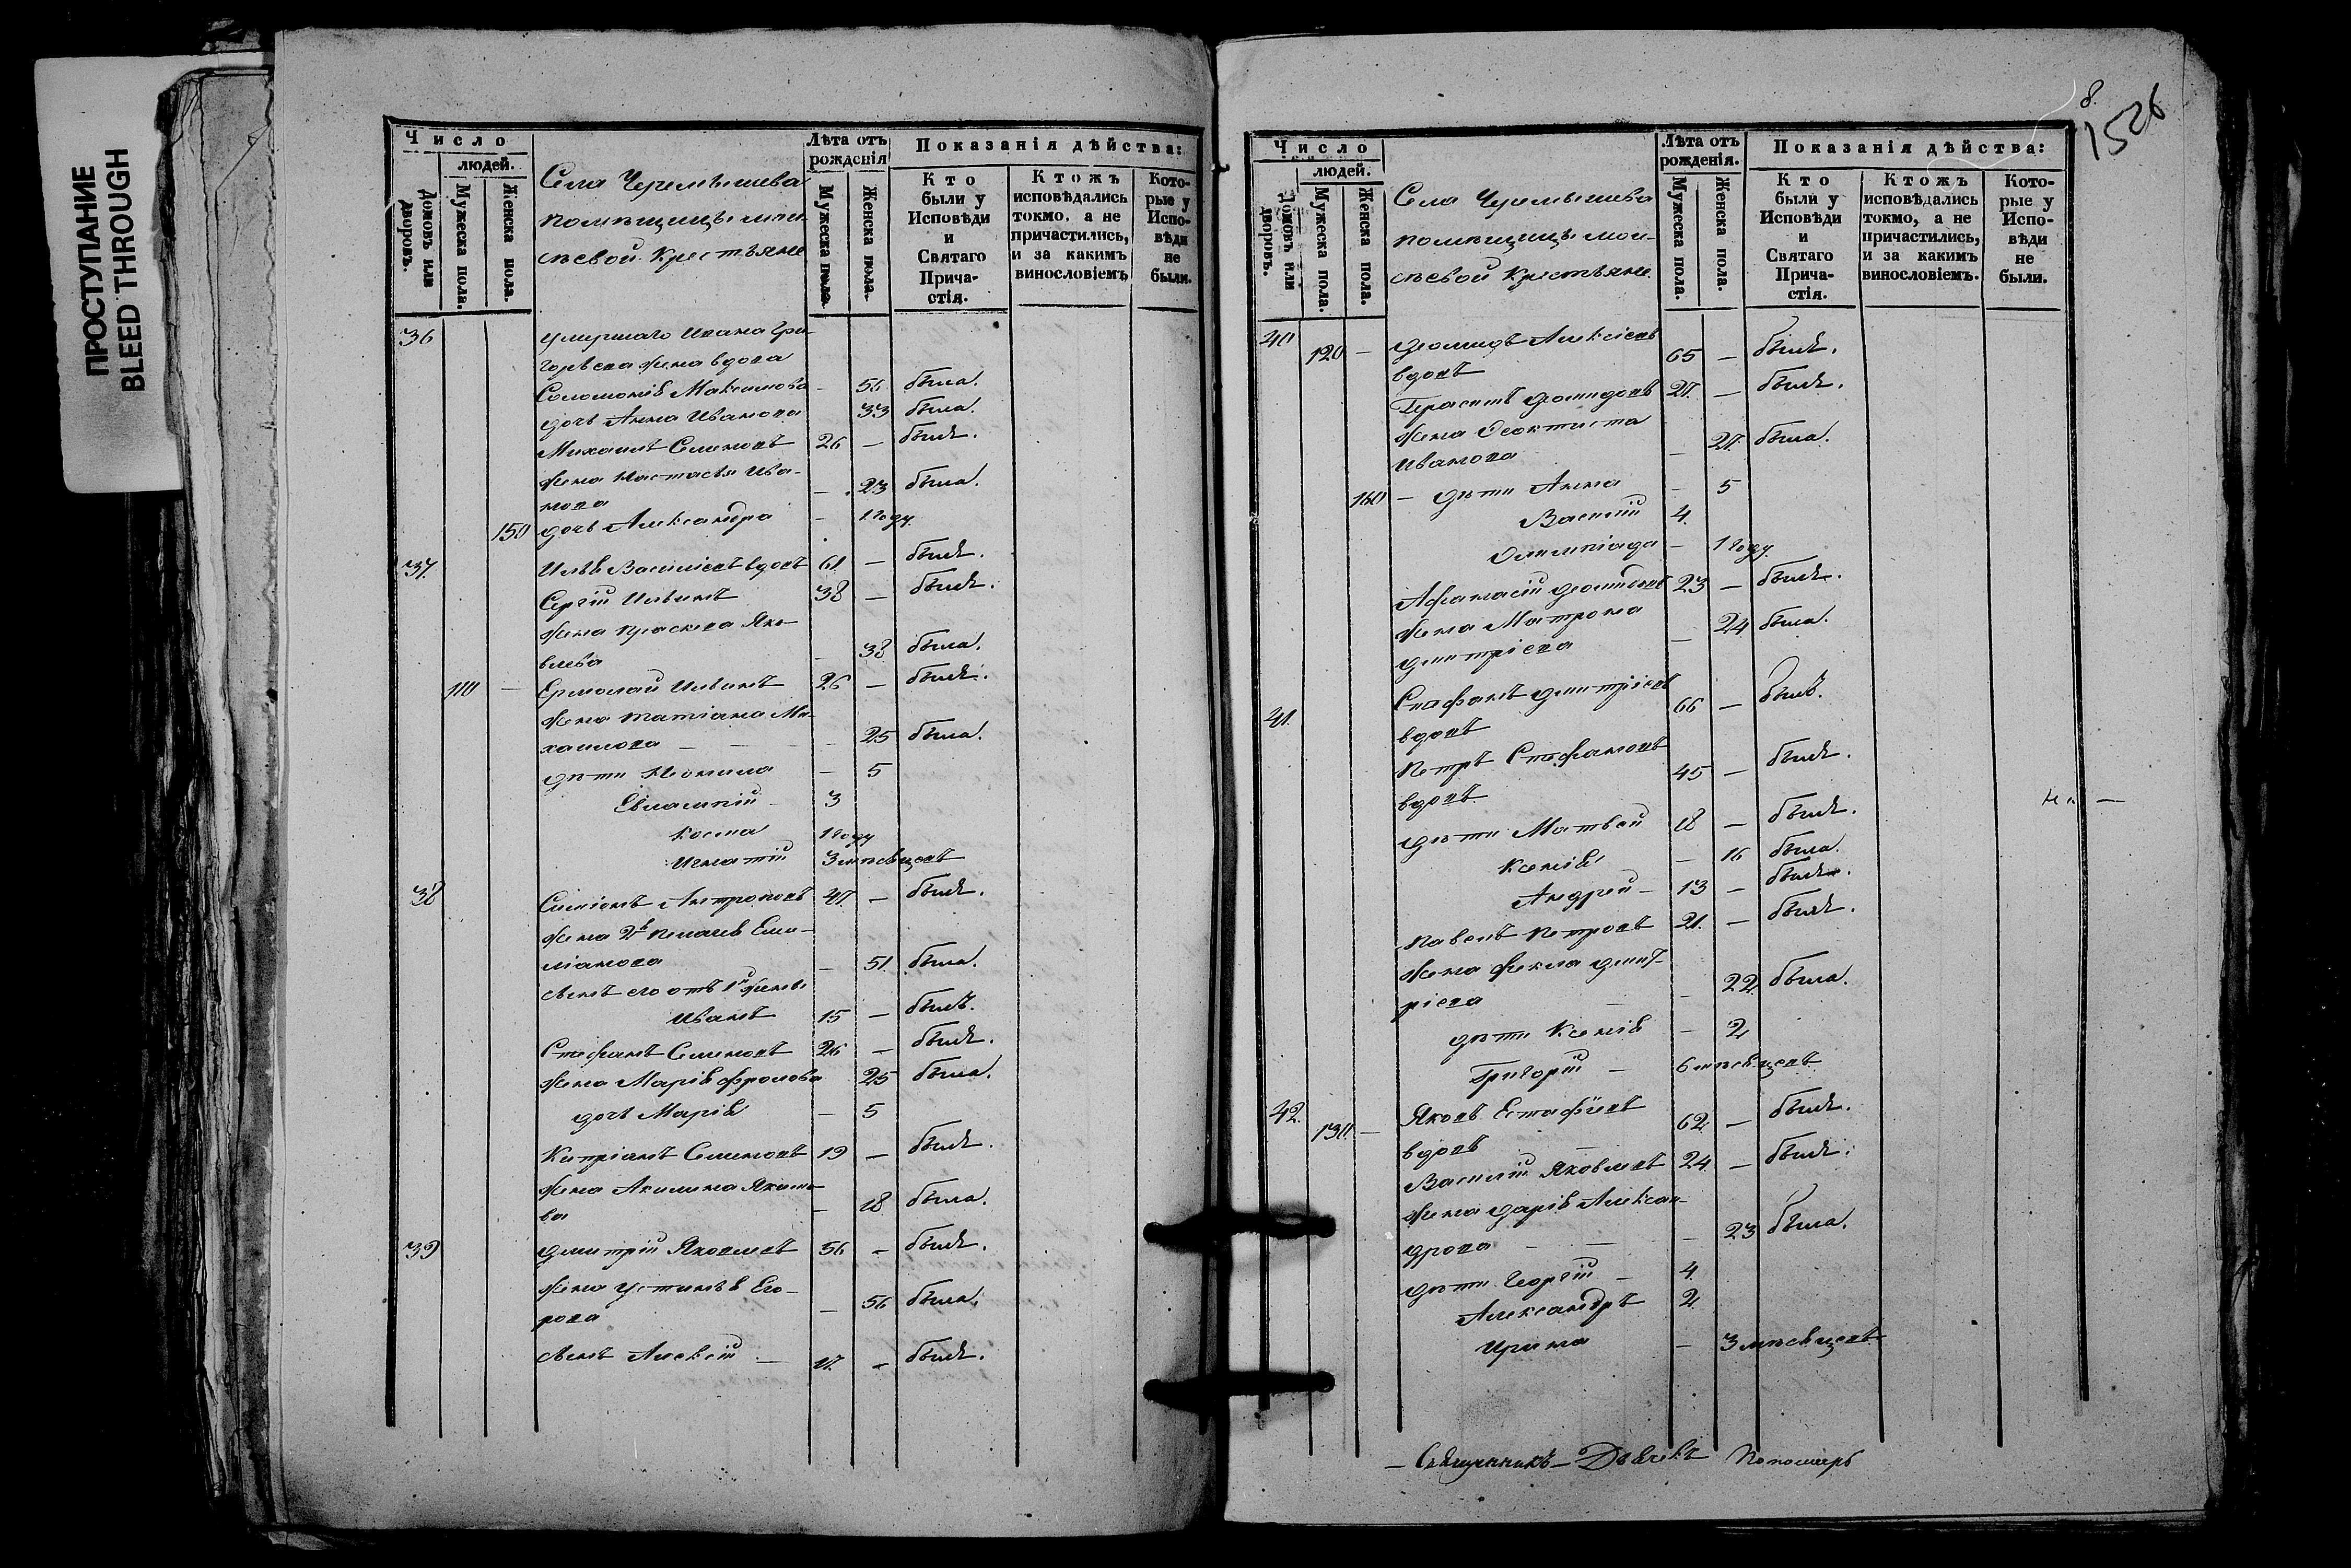 ПРОСТУПАНИЕ
BLEED THROUGH
Число
людей.
Домовъ или дворовъ.
Мужеска пола.
Женска пола.
Села Черемышева
помѣщицы мои-
сѣевой Крестьяне
Лѣта отъ рожденія
Мужеска пола.
Женска пола.
Показанія дѣйства:
Кто были у Исповѣди и Святаго Причастія.
Ктожъ исповѣдались токмо, а не причастились, и за какимъ винословіемъ
Которые у Исповѣди не были.
36 умершаго Ивана Гри-
горьева жена вдова
Соломонія Максимова – 56 была.
дочь Анна Иванова 33 была.
Михаилъ Семеновъ 26 – былъ.
жена Настасья Ива-
нова – 23 была.
150 дочь Александра – 1 году
37. Илья Василіевъ вдовъ 61 – былъ.
Сергій Ильинъ 38 – былъ.
жена Праскева Яко-
влева – 38 была.
110 – Ермолай Ильинъ 26 – былъ.
жена Татіана Ми-
хаилова – – – 25 была.
дѣти Неонила – 5
Евлампій – 3
Косма 1 году
Игнатій 3 мѣсяцевъ
38 Симіонъ Антроповъ 47. – былъ.
жена 2я Пелагея Еми-
ліанова – 51. была.
сынъ его отъ 1й жены
Иванъ 15 – былъ.
Стефанъ Семеновъ 26 – былъ.
жена Марія Фролова 25 была.
дочь Марія – 5
Кипріанъ Семеновъ 19 – былъ.
жена Акилина Якимо-
ва – 18 была.
39 Дмитрій Яковлевъ 56 – былъ.
жена Устинья Его-
рова – 56 была.
сынъ Алексій – 17. – былъ.
8.
1526
Число
людей.
Домовъ или дворовъ.
Мужеска пола.
Женска пола.
Села Черемышева
помѣщицы мои-
сѣевой Крестьяне
Лѣта отъ рожденія.
Мужеска пола.
Женска пола.
Показанія дѣйства:
Кто были у Исповѣди и Святаго Причастія.
Ктожъ исповѣдались токмо, а не причастились, и за какимъ винословіемъ.
Которые у Исповѣди не были.
40 120 – Діомидъ Алексіевъ
вдовъ 65 – былъ.
Герасимъ Діомидовъ 27. – былъ.
жена Феоктиста
Иванова – 27. была.
160 – дѣти Анна – 5
Василій 4.
Олимпіада – 1 году
Афанасій Діомидовъ 23 – былъ.
жена Матрона
Дмитріева – 24 была.
41. Стефанъ Дмитріевъ
вдовъ 66 – былъ.
Петръ Стефановъ
вдовъ 45 – былъ.
дѣти Матвей 18 – былъ.
Ксенія – 16 была.
Андрей – 13 – былъ.
Павелъ Петровъ 21. – былъ.
жена Фекла Дмит-
ріева – 22. была.
дѣти Ксенія – 2
Григорій – 6 мѣсяцевъ
42. 130 – Яковъ Естафіевъ
вдовъ 62. – былъ.
Василій Яковлевъ 24. – былъ.
жена Дарія Алексан-
дрова – – – 23 была.
дѣти Георгій – 4.
Александръ 2.
Ирина – 3 мѣсяцевъ
– Священникъ –